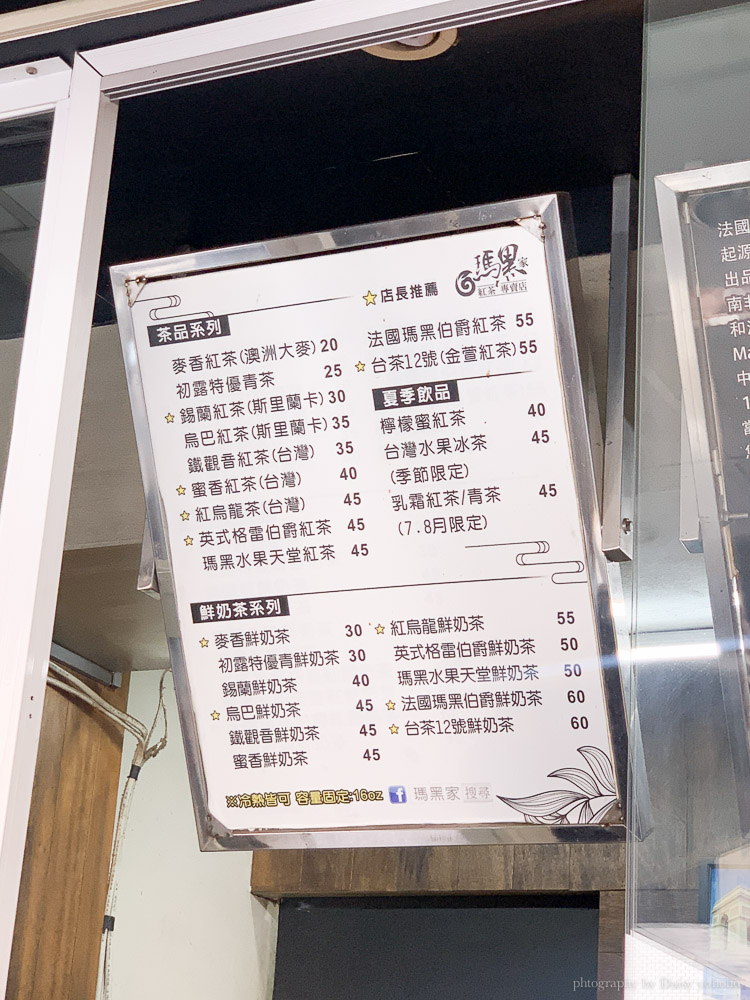 瑪黑家
紅茶專賣店
店長推薦
茶品系列
麥香紅茶(澳洲大麥) 20
初露特優青茶 25
錫蘭紅茶(斯里蘭卡) 30
烏巴紅茶(斯里蘭卡) 35
鐵觀音紅茶(台灣) 35
蜜香紅茶(台灣) 40
紅烏龍茶(台灣) 45
英式格雷伯爵紅茶 45
瑪黑水果天堂紅茶 45
法國瑪黑伯爵紅茶 55
台茶12號(金萱紅茶) 55
夏季飲品
檸檬蜜紅茶 40
台灣水果冰茶 45
(季節限定)
乳霜紅茶/青茶 45
(7.8月限定)
鮮奶茶系列
麥香鮮奶茶 30
初露特優青鮮奶茶 30
錫蘭鮮奶茶 40
烏巴鮮奶茶 45
鐵觀音鮮奶茶 45
蜜香鮮奶茶 45
紅烏龍鮮奶茶 55
英式格雷伯爵鮮奶茶 50
瑪黑水果天堂鮮奶茶 50
法國瑪黑伯爵鮮奶茶 60
台茶12號鮮奶茶 60
※冷熱皆可 容量固定:16oz
f 瑪黑家 搜尋
法國
起源
出品
南非
和
Ma
中
1
當